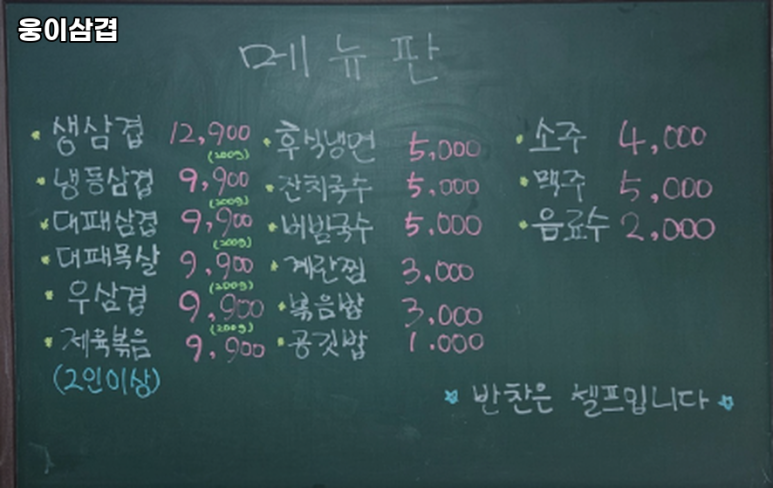 웅이삼겹
메뉴판
생삼겹 12,900
(200g)
냉동삼겹 9,900
(200g)
대패삼겹 9,900
(200g)
대패목살 9,900
(200g)
우삼겹 9,900
(200g)
제육볶음 9,900
(2인이상)
후식냉면 5,000
잔치국수 5,000
비빔국수 5,000
계란찜 3,000
볶음밥 3,000
공깃밥 1.000
소주 4,000
맥주 5,000
음료수 2,000
반찬은 셀프입니다